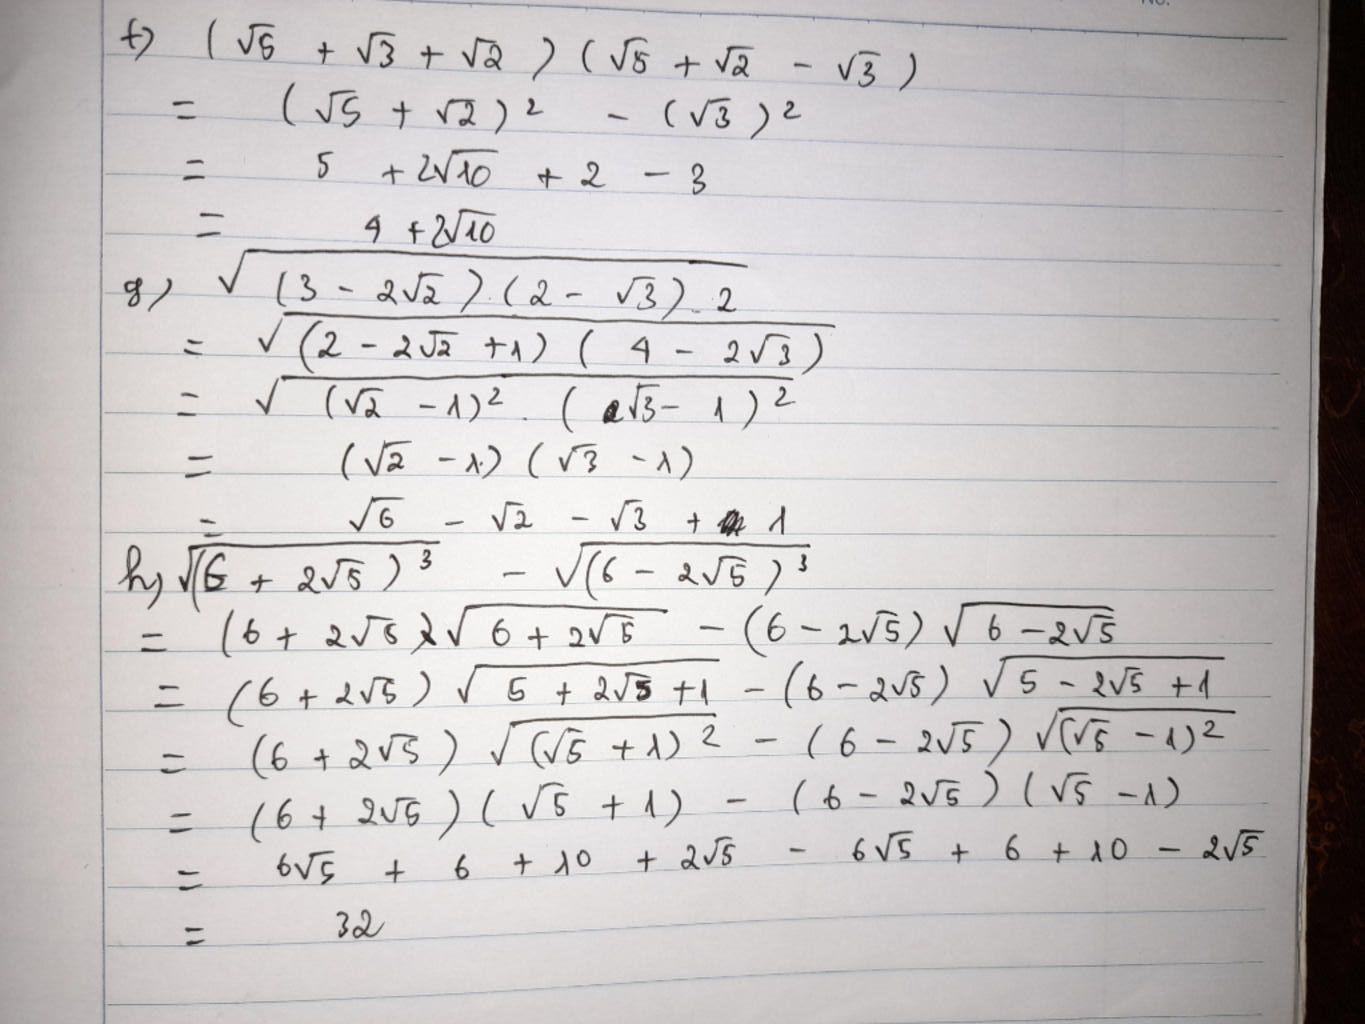 No.
f) (√5 + √3 + √2) (√5 + √2 - √3)
= (√5 + √2)² - (√3)²
= 5 + 2√10 + 2 - 3
= 4 + 2√10
g) √((3 - 2√2).(2 - √3).2)
= √((2 - 2√2 + 1) (4 - 2√3))
= √((√2 - 1)².(√3 - 1)²)
= (√2 - 1) (√3 - 1)
= √6 - √2 - √3 + 1
h) √((6 + 2√5)³) - √((6 - 2√5)³)
= (6 + 2√5) √(6 + 2√5) - (6 - 2√5) √(6 - 2√5)
= (6 + 2√5) √(5 + 2√5 + 1) - (6 - 2√5) √(5 - 2√5 + 1)
= (6 + 2√5) √((√5 + 1)²) - (6 - 2√5) √((√5 - 1)²)
= (6 + 2√5) (√5 + 1) - (6 - 2√5) (√5 - 1)
= 6√5 + 6 + 10 + 2√5 - 6√5 + 6 + 10 - 2√5
= 32